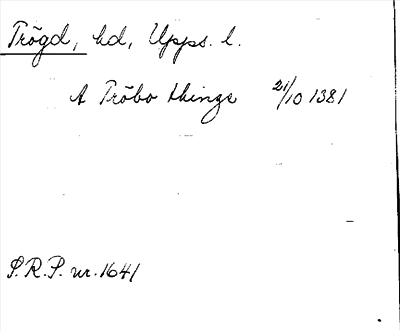 Trögd, hd, Upps. l.
A Tröbo thinge 21/10 1381
S.R.P. nr. 1641